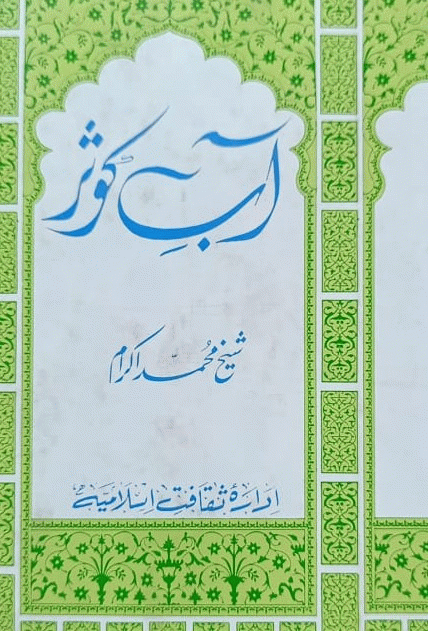 آبِ کوثر
شیخ محمد اکرام
ادارۂ ثقافت اسلامیہ